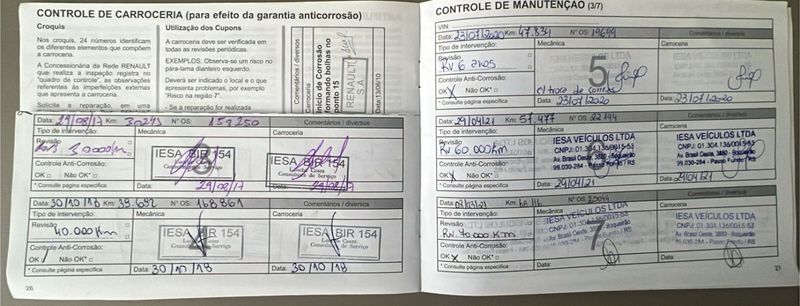 CONTROLE DE CARROCERIA (para efeito da garantia anticorrosão)
Croquis
Nos croquis, 24 números identificam
os diferentes elementos que compõem
a carroceria.
A Concessionária da Rede RENAULT
que realiza a inspeção registra no
"quadro de controle", as observações
referentes às imperfeições externas
que apresenta a carroceria.
Solicite a reparação, em uma
Utilização dos Cupons
A carroceria deve ser verificada em
todas as revisões periódicas.
EXEMPLOS. Observa-se um risco no
pára-lama dianteiro esquerdo.
Deverá ser indicado o local e o que
apresenta problemas, por exemplo
"Risco na região 7".
- Se a reparação for realizada
Comentários / diversos
Início de Corrosão
formando bolhas no
ponto 15
RENAULT
S.A.
Data: 29/08/17 Km: 30243 N° OS: 159250 Comentários / diversos
Tipo de intervenção: Mecânica Carroceria
Revisão
30000km
IESA BIR 154
IESA BIR 154
Controle Anti-Corrosão:
OK Não OK*
* Consulte página específica
Data: 29/08/17
29/08/17
Data: 30/10/18 Km: 39.692 N° OS: 168861 Comentários / diversos
Tipo de intervenção: Mecânica Carroceria
Revisão
40.000Km
IESA BIR 154
Consultor de Serviço
IESA BIR 154
Consultor de Serviço
Controle Anti-Corrosão:
OK Não OK*
* Consulte página específica
Data: 30/10/18
Data: 30/10/18
26
CONTROLE DE MANUTENÇÃO (3/7)
VIN:
Data: 23/07/2020 Km: 47.834 N° OS: 19699
Tipo de intervenção: Mecânica Carroceria
Revisão
RV 6 anos
5
Controle Anti-Corrosão:
OK Não OK*
* Consulte página específica
Data: 23/07/2020
Data: 23/07/2020
Data: 29/04/21 Km: 57.477 N° OS: 22144
Comentários / diversos
Tipo de intervenção:
Revisão
RV 60.000km
IESA VEÍCULOS LTDA
CNPJ: 01.304.136/0015-53
Av. Brasil Oeste, 3850 - Boqueirão
99.030-284 - Passo Fundo / RS
IESA VEÍCULOS LTDA
CNPJ: 01.304.136/0015-53
Av. Brasil Oeste, 3850 - Boqueirão
99.030-284 - Passo Fundo / RS
Controle Anti-Corrosão:
OK Não OK*
* Consulte página específica
Data: 29/04/21
Data: 29/04/21
Tipo de intervenção:
Revisão
RV. 70.000 Km
7
IESA VEÍCULOS LTDA
CNPJ: 01.304.136/0015-53
Av. Brasil Oeste, 3850 - Boqueirão
99.030-284 - Passo Fundo / RS
IESA VEÍCULOS LTDA
CNPJ: 01.304.136/0015-53
Av. Brasil Oeste, 3850 - Boqueirão
99.030-284 - Passo Fundo / RS
Controle Anti-Corrosão:
OK Não OK*
* Consulte página específica
Data:
Data: